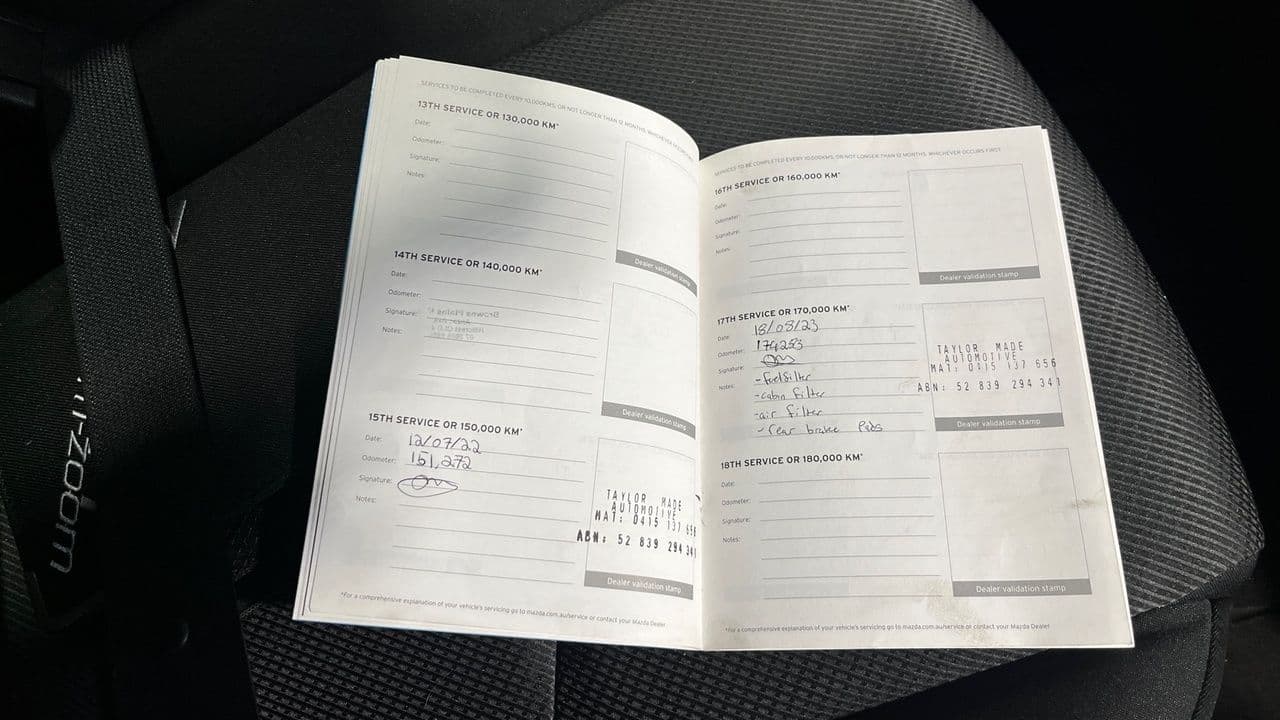 SERVICES TO BE COMPLETED EVERY 10,000KMS, OR NOT LONGER THAN 12 MONTHS, WHICHEVER OCCURS
13TH SERVICE OR 130,000 KM*
Date:
Odometer:
Signature:
Notes:
Dealer validation stamp
14TH SERVICE OR 140,000 KM*
Date:
Odometer:
Signature:
Notes:
Dealer validation stamp
15TH SERVICE OR 150,000 KM*
Date: 12/07/22
Odometer: 151,272
Signature:
Notes:
TAYLOR MADE
AUTOMOTIVE
MAT: 0415 137 656
ABN: 52 839 294 341
Dealer validation stamp
*For a comprehensive explanation of your vehicle's servicing go to mazda.com.au/service or contact your Mazda Dealer
SERVICES TO BE COMPLETED EVERY 10,000KMS, OR NOT LONGER THAN 12 MONTHS, WHICHEVER OCCURS FIRST.
16TH SERVICE OR 160,000 KM*
Date:
Odometer:
Signature:
Notes:
Dealer validation stamp
17TH SERVICE OR 170,000 KM*
Date: 18/08/23
Odometer: 174253
Signature:
Notes: -fuel filter
-cabin filter
-air filter
-rear brake Pads
TAYLOR MADE
AUTOMOTIVE
MAT: 0415 137 656
ABN: 52 839 294 341
Dealer validation stamp
18TH SERVICE OR 180,000 KM*
Date:
Odometer:
Signature:
Notes:
Dealer validation stamp
*For a comprehensive explanation of your vehicle's servicing go to mazda.com.au/service or contact your Mazda Dealer
zoom